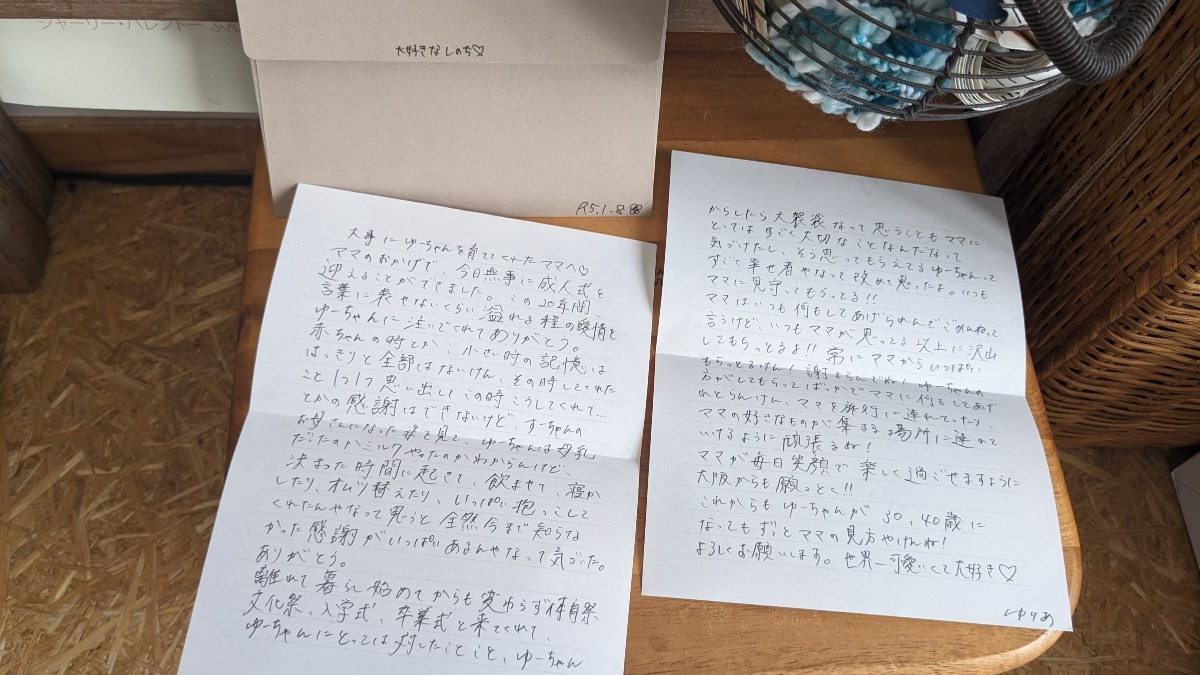 シャーリー・バレントー ぶん
大好きなしのち♡
R5.1.8
大事にゆーちゃんを育ててくれたママへ♡
ママのおかげで、今日無事に成人式を
迎えることができました。この20年間
言葉に表せないくらい溢れる程の愛情を
ゆーちゃんに注いでくれてありがとう。
赤ちゃんの時とか、小さい時の記憶は
はっきりと全部はないけん、その時してくれた
こと1つ1つ思い出してこの時こうしてくれて…
とかの感謝はできないけど、すーちゃんの
お母さんになった姿を見て、ゆーちゃんは母乳
だったのかミルクやったのかわからんけど、
決まった時間に起きて、飲ませて、寝か
したり、オムツ替えたり、いっぱい抱っこして
くれたんやなって思うと全然今まで知らな
かった感謝がいっぱいあるんやなって気づいた。
ありがとう。
離れて暮らし始めてからも変わらず体育祭
文化祭、入学式、卒業式と来てくれて、
ゆーちゃんにとっては対したことこと、ゆーちゃん
からしたら大袈裟なって思うこともママに
とってはすごく大切なことなんだなって
気づけたし、そう思ってもらえてるゆーちゃんって
すごく幸せ者やなって改めて思ったよ。いつも
ママに見守ってもらっとる!!
ママはいつも何もしてあげられんでごめんねって
言うけど、いつもママが思っとる以上に沢山
してもらっとるよ!! 常にママからいっぱい
もらっとるけん!謝まらんでね!ゆーちゃんの
方がしてもらってばっかでママに何もしてあげ
れとらんけん、ママを旅行に連れてったり、
ママの好きなものが集まる場所に連れて
いけるように頑張るね!
ママが毎日笑顔で楽しく過ごせますように
大阪からも願っとく!!
これからもゆーちゃんが30,40歳に
なってもずっとママの見方やけんね!
よろしくお願いします。世界一可愛いくて大好き♡
ゆりあ